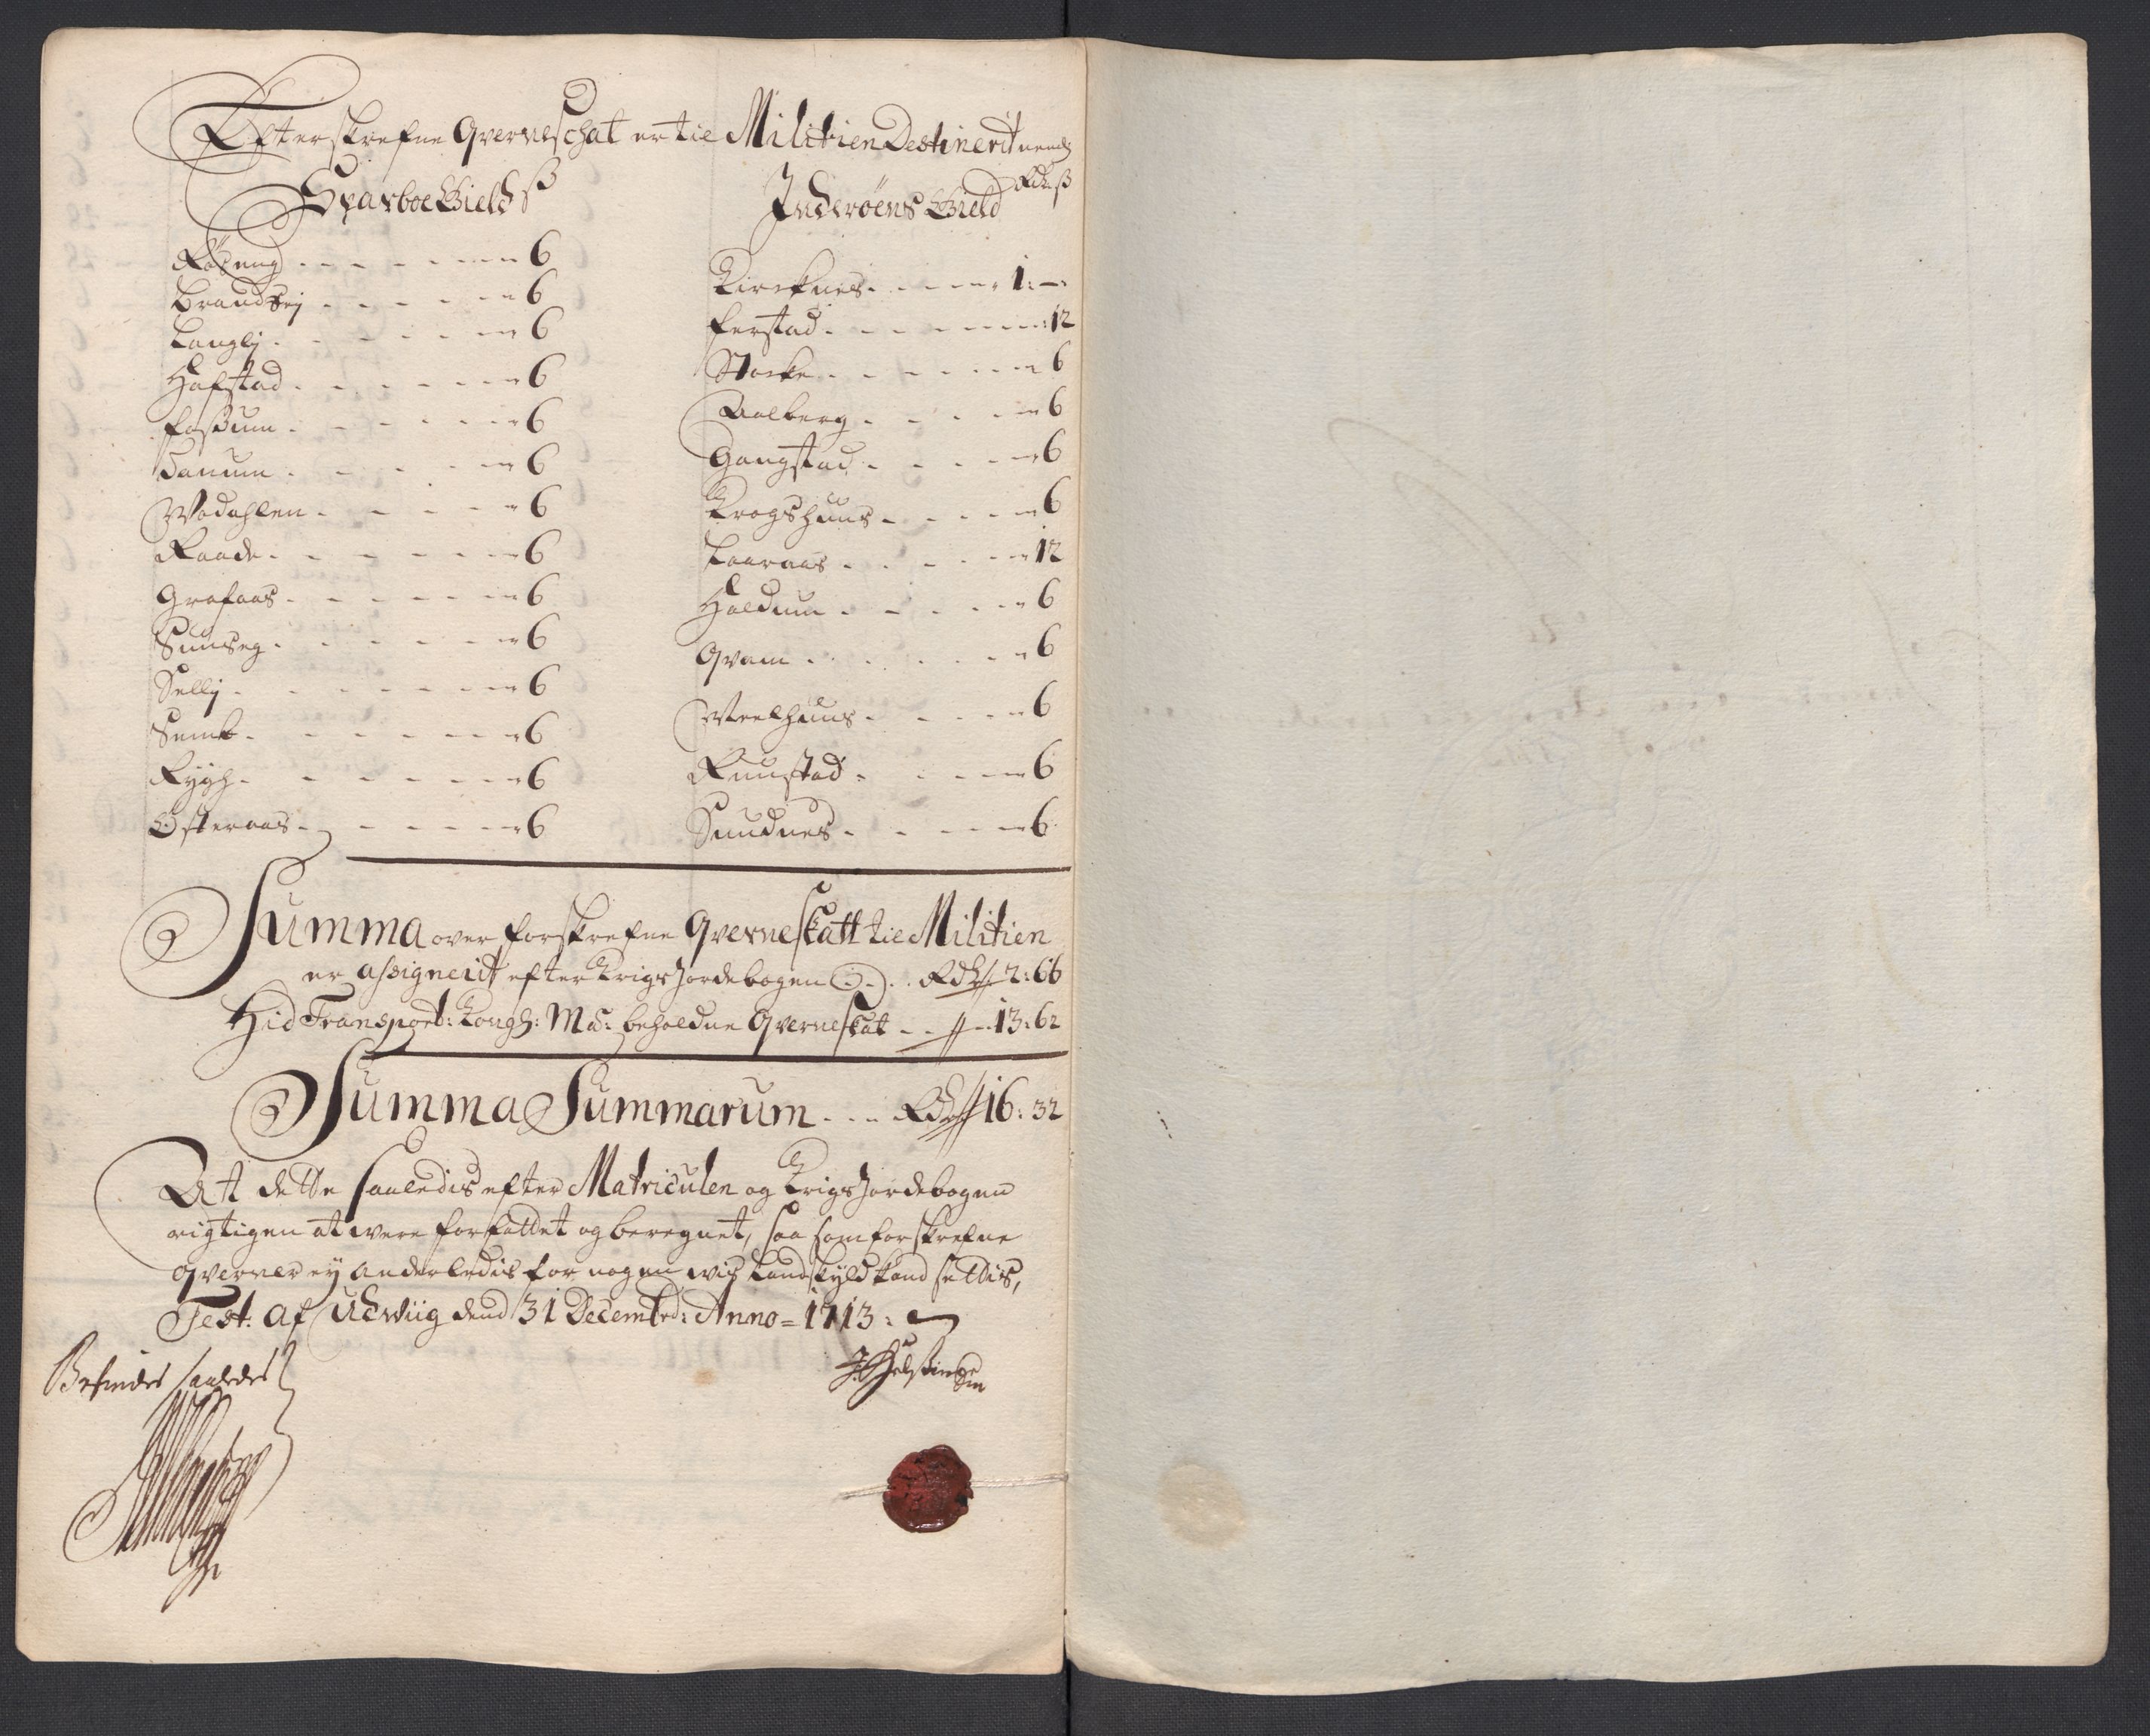 Efterskrefne Qverneschat er til Militien Destinerit nemb:
Sparboe Gield ß
Røseng - - - - - 6
Brandsej - - - - - 6
Langlj - - - - - 6
Hafstad - - - - - 6
Fossum - - - - - 6
Danum - - - - - 6
Wodahlen - - - - - 6
Raade - - - - - 6
Grafaas - - - - - 6
Sunseg - - - - - 6
Sellj - - - - - 6
Semb - - - - - 6
Rygh - - - - - 6
Østeraas - - - - - 6
Inderøens Gield Rdr ß
Kirknes - - - - - 1: -
Ferstad - - - - - 12
Storke - - - - - 6
Aalberg - - - - - 6
Gangstad - - - - - 6
Krogshuus - - - - - 6
Laaraas - - - - - 12
Haldum - - - - - 6
Qvam - - - - - 6
Weelhuus - - - - - 6
Ruustad - - - - - 6
Sundnes - - - - - 6
Summa over forskrefne Qverneskatt til Militien
er assignerit efter Krigs Jordebogen - . . Rdr 2: 66
Hid Transport: Kongl: Ma: beholdne Qverneskat - - 13: 62
Summa Summarum . . . Rdr 16: 32
At dette saaledis efter Matriculen og Krigs Jordebogen
rigtigen at were forfattet og beregnet, saa som forskrefne
Qverner ej anderledis for nogen wis Landskyld kand settis,
Test. af Udwiig dend 31 Decembr: Anno = 1713:
Befindes saaledes